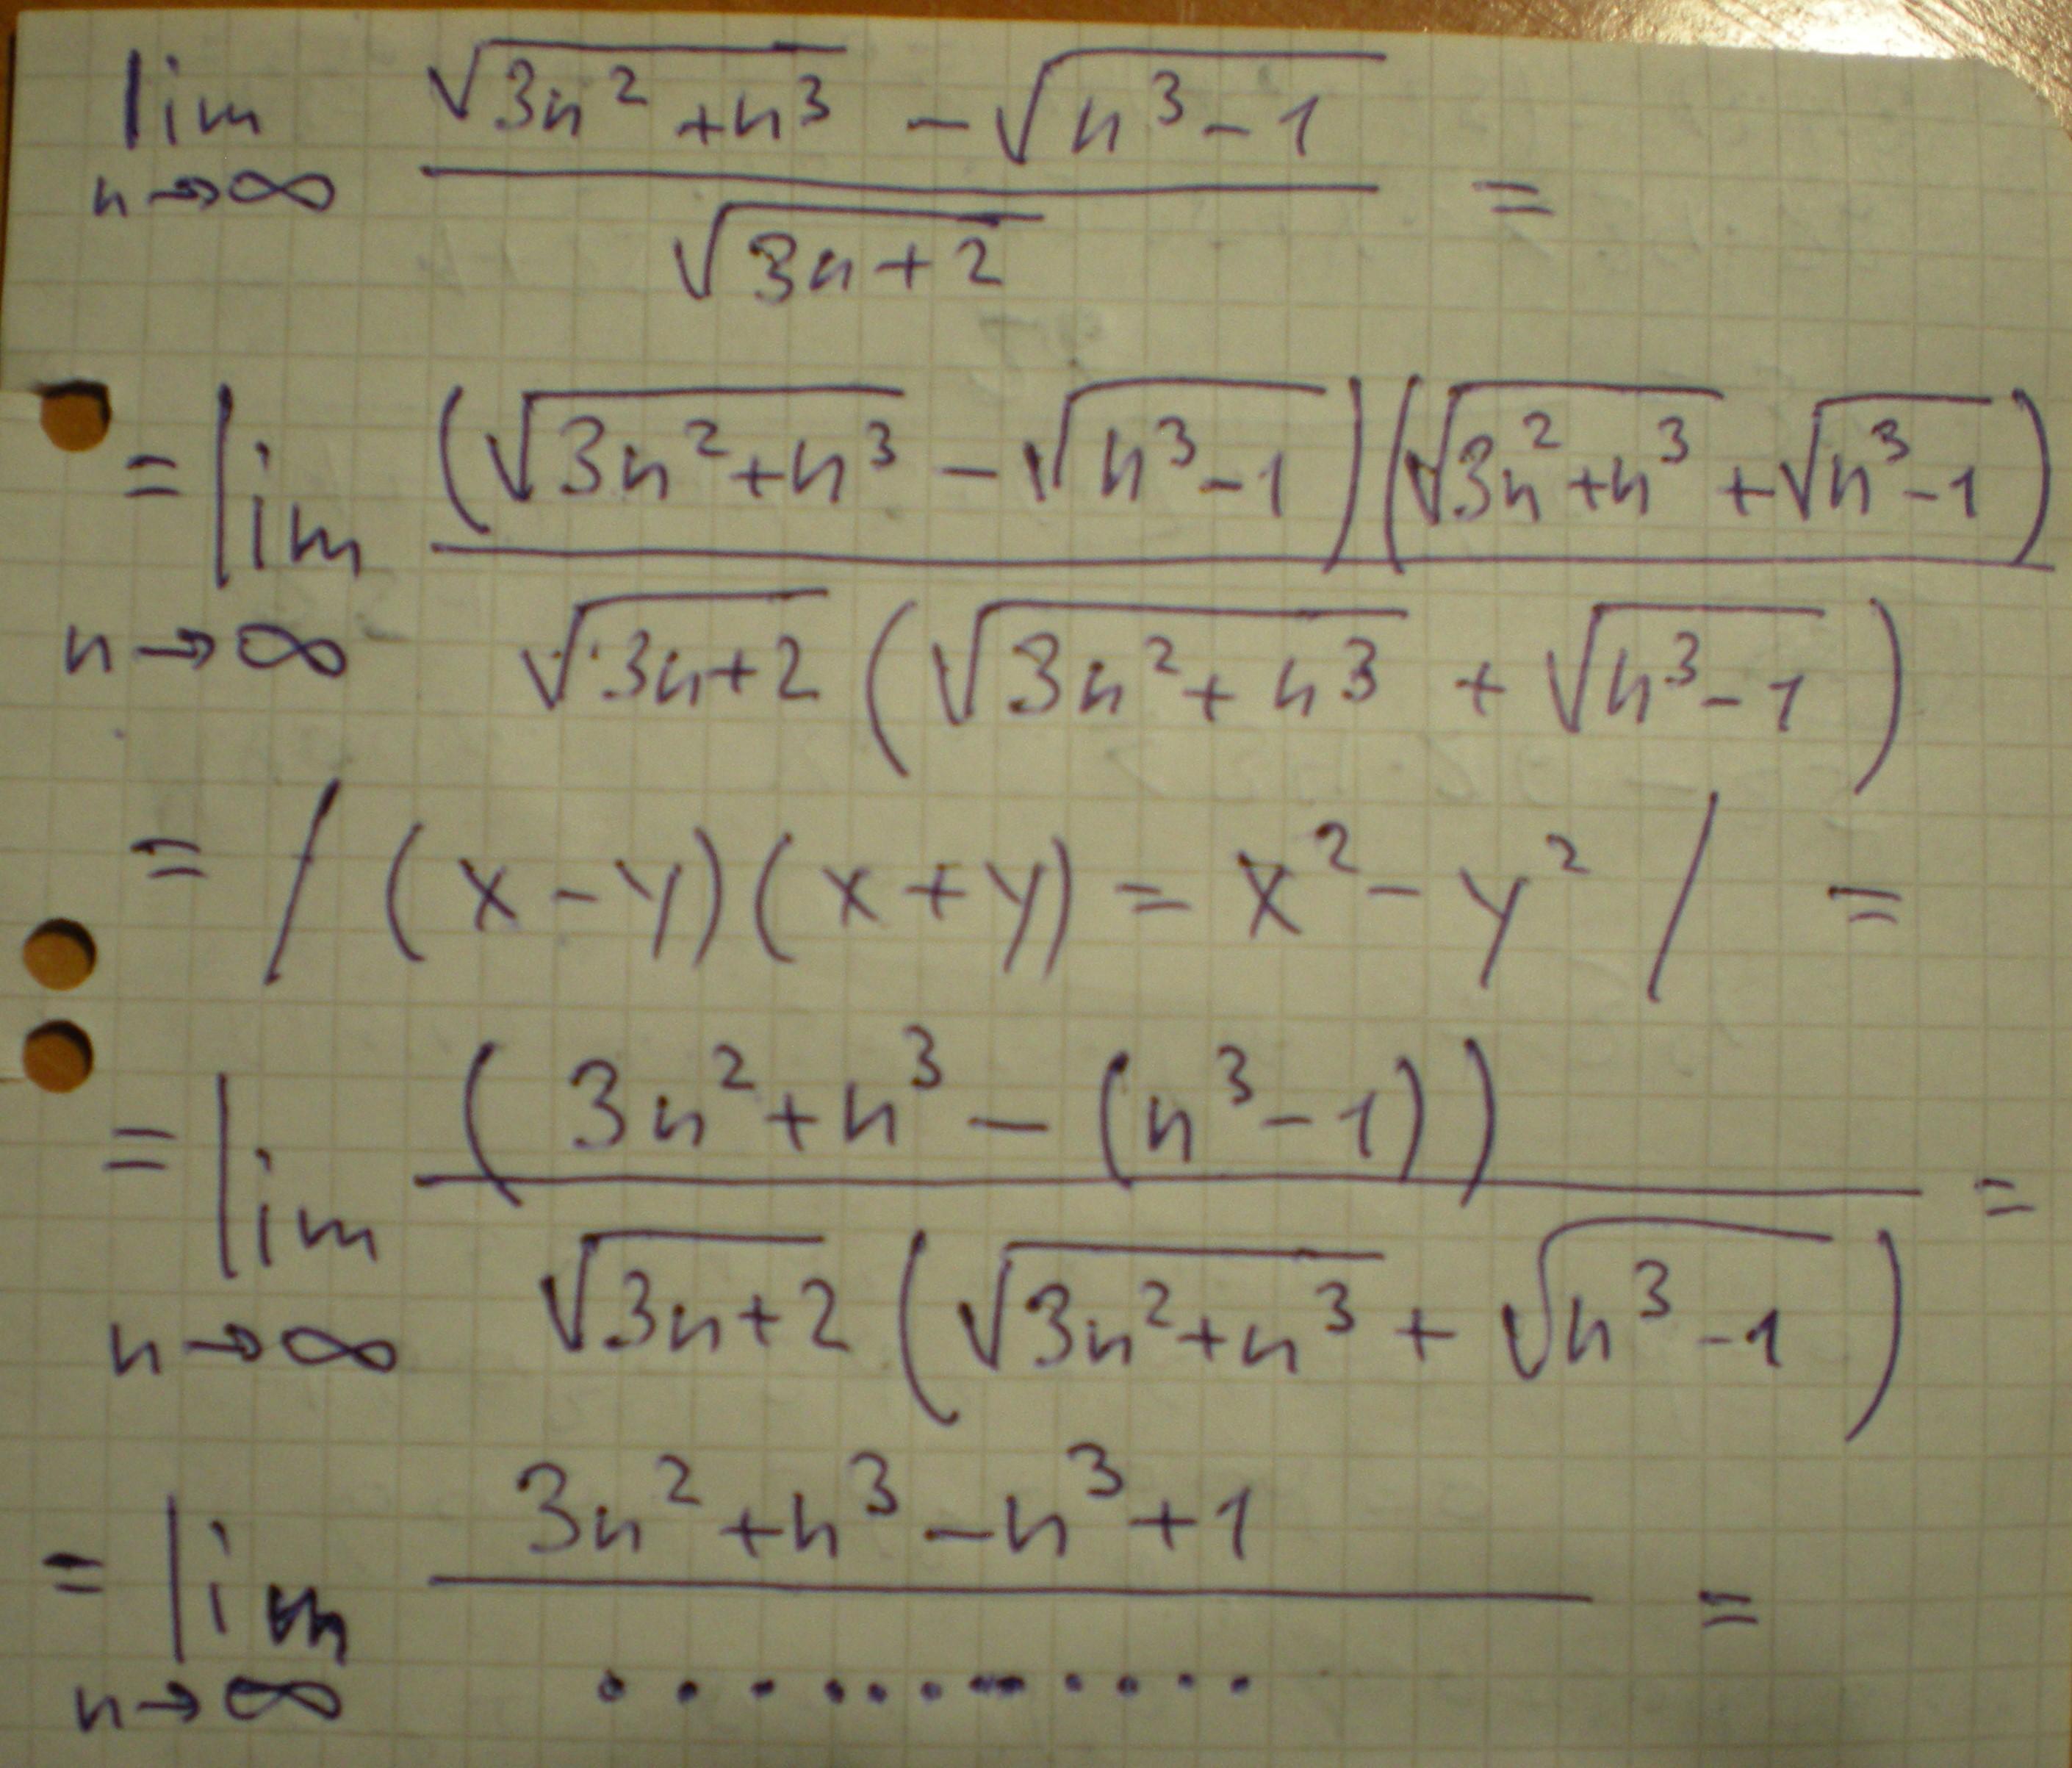 lim n→∞ (√(3n² + n³) − √(n³ − 1)) / √(3n + 2) =
= lim n→∞ ((√(3n² + n³) − √(n³ − 1)) (√(3n² + n³) + √(n³ − 1))) / (√(3n + 2) (√(3n² + n³) + √(n³ − 1)))
= / (x − y)(x + y) = x² − y² / =
= lim n→∞ (3n² + n³ − (n³ − 1)) / (√(3n + 2) (√(3n² + n³) + √(n³ − 1))) =
= lim n→∞ (3n² + n³ − n³ + 1) / ............ =